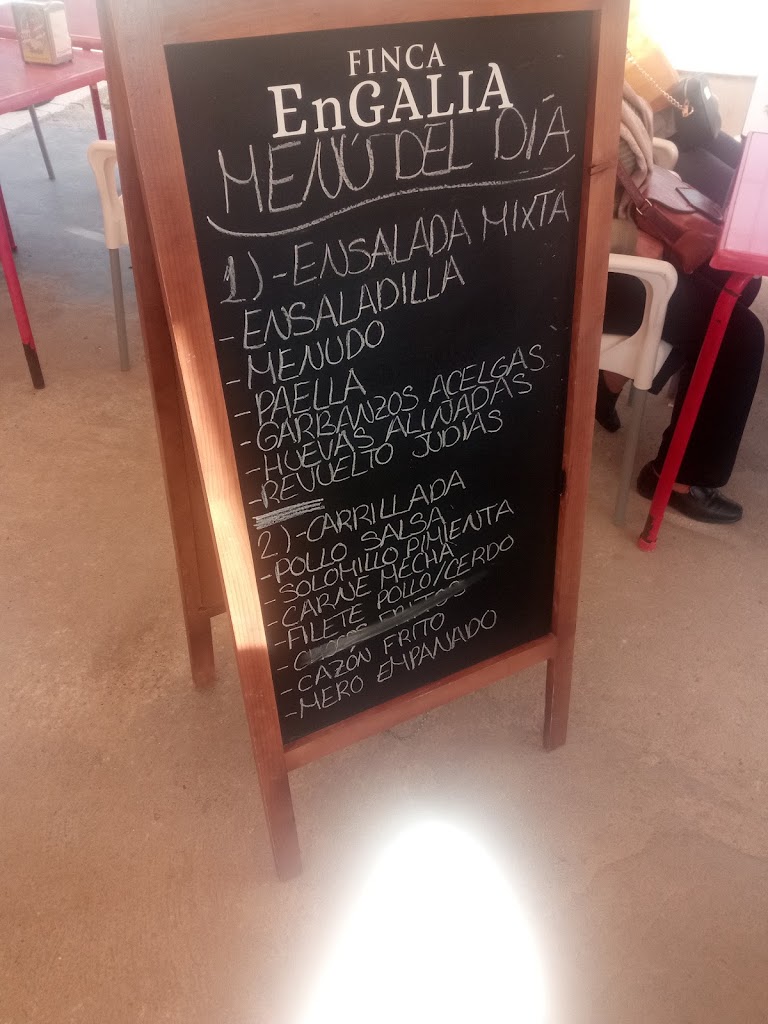 FINCA
EnGALIA
MENÚ DEL DÍA
1)-ENSALADA MIXTA
-ENSALADILLA
-MENUDO
-PAELLA
-GARBANZOS ACELGAS
-HUEVAS ALIÑADAS
-REVUELTO JUDÍAS
2)-CARRILLADA
-POLLO SALSA
-SOLOMILLO PIMIENTA
-CARNE MECHA
-FILETE POLLO/CERDO
-CHOCOS FRITOS
-CAZÓN FRITO
-MERO EMPANADO